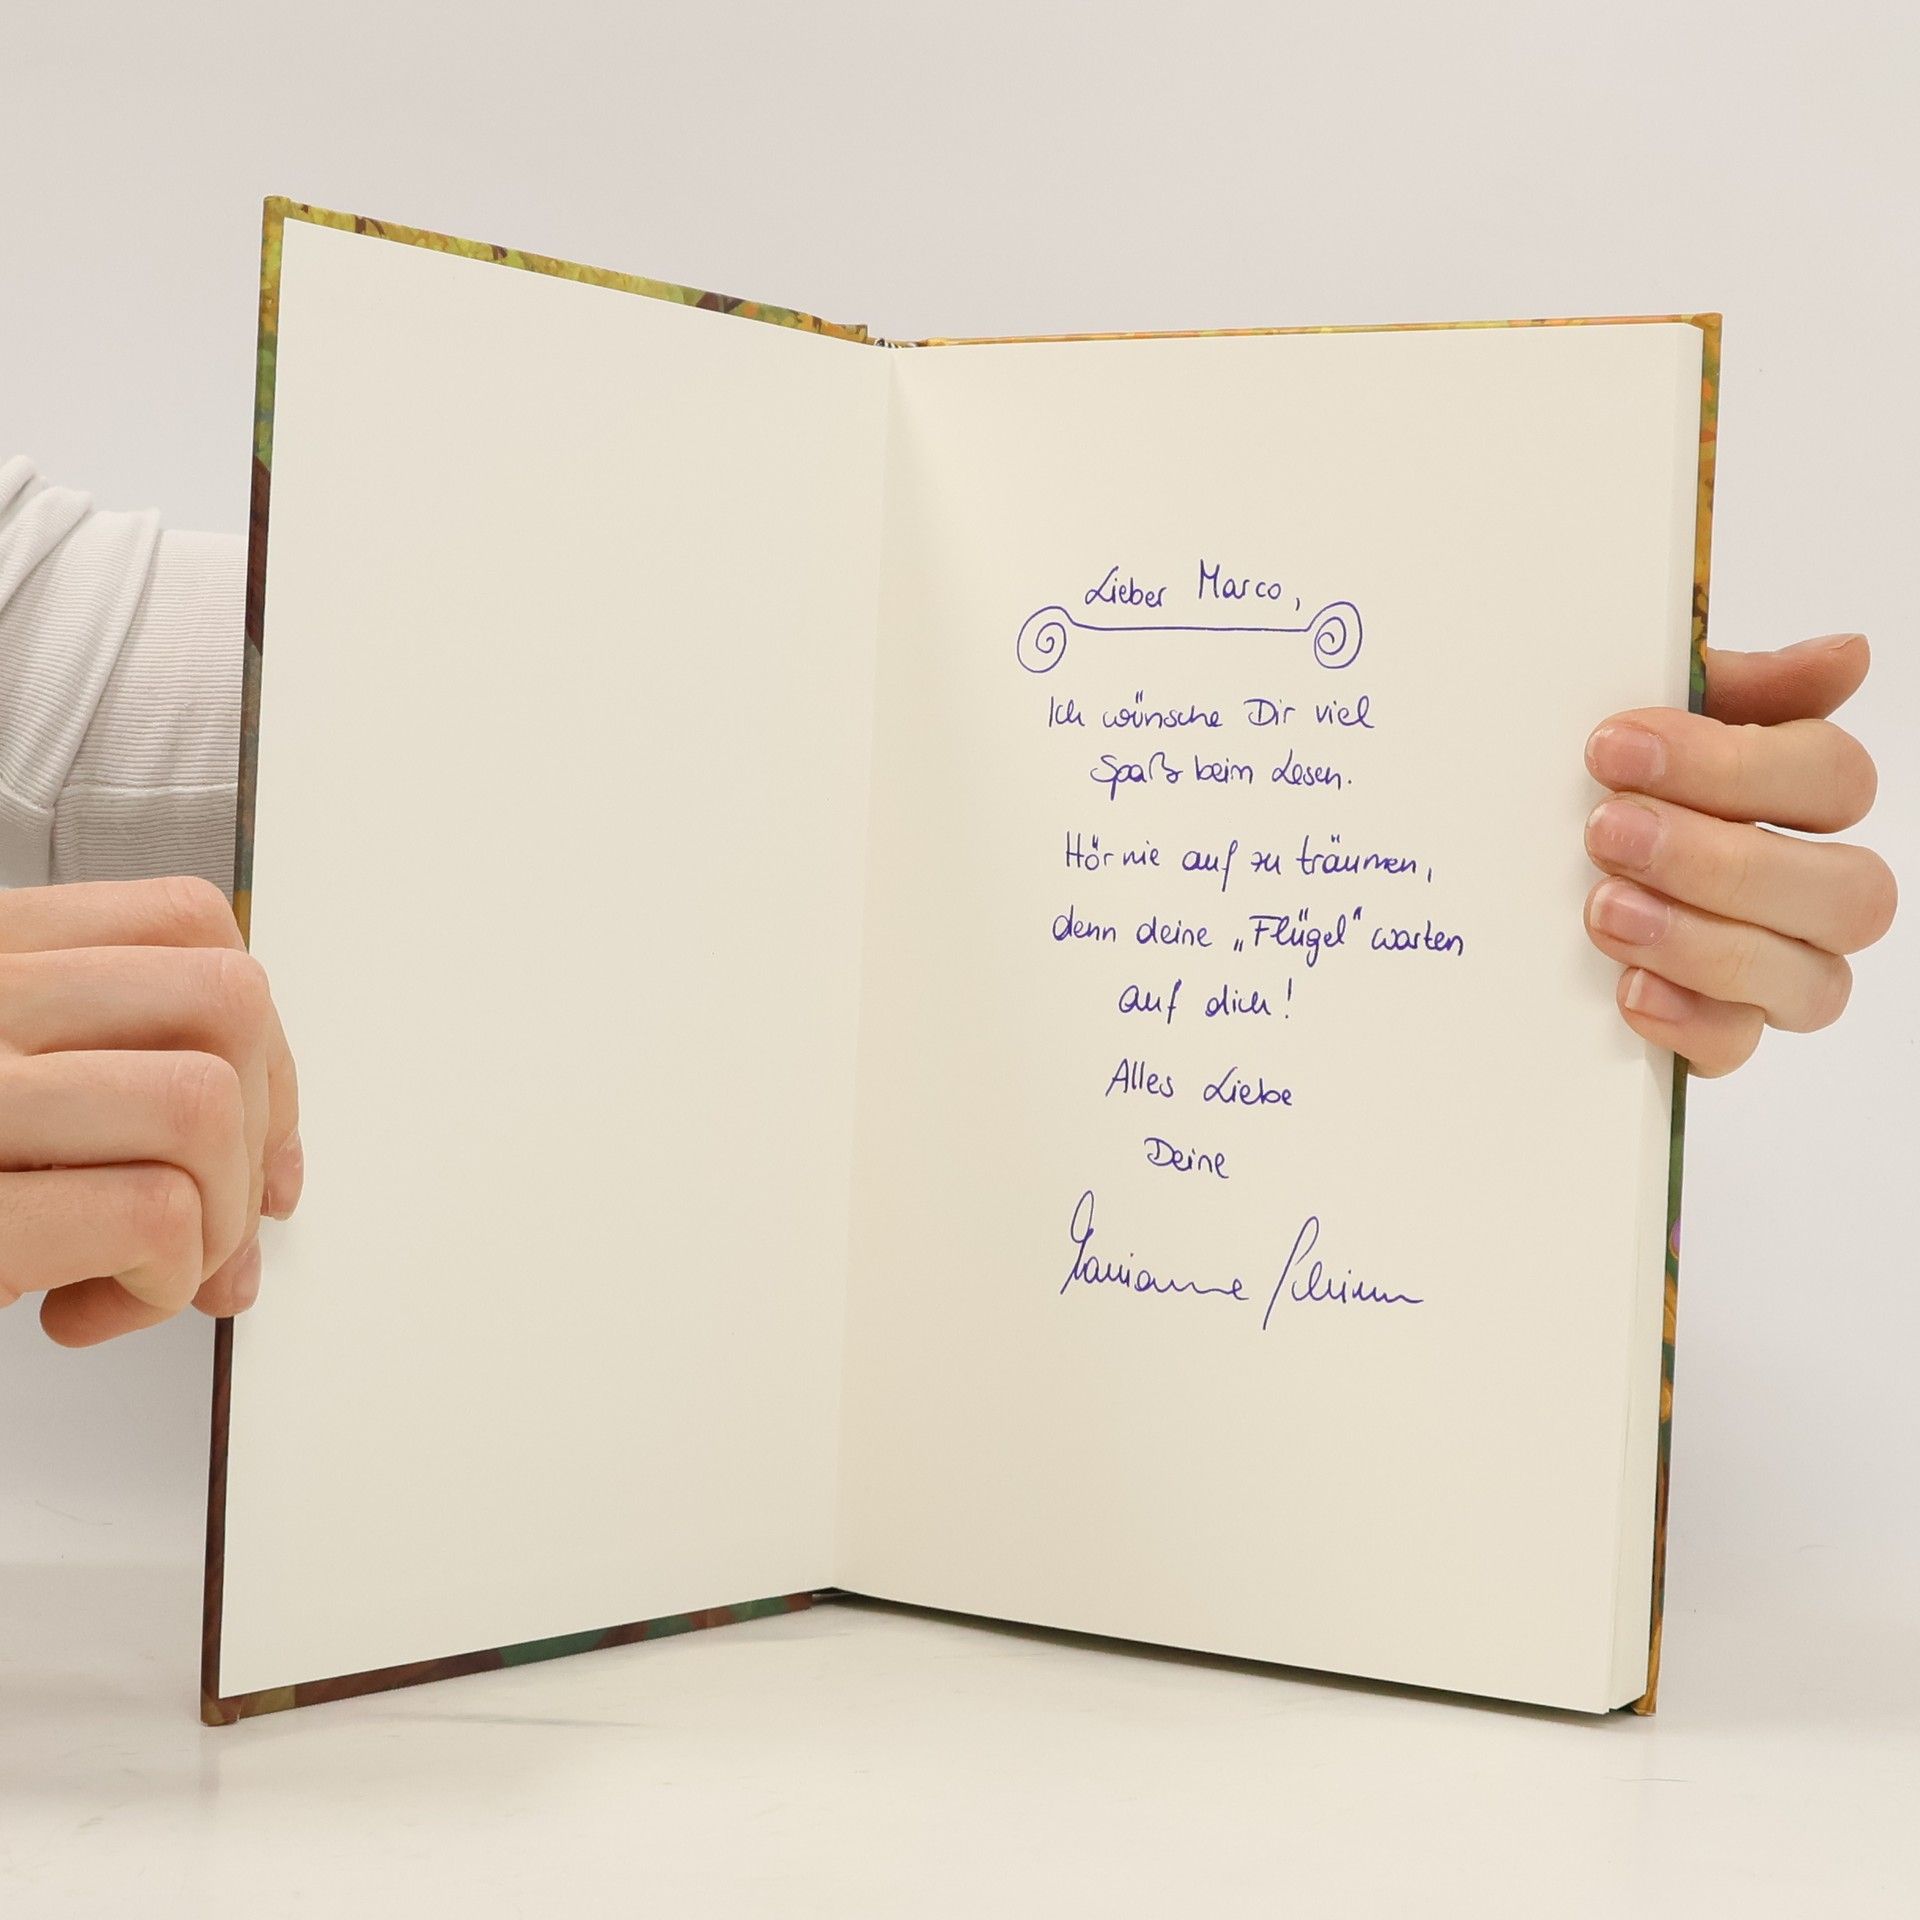 Lieber Marco,
Ich wünsche Dir viel
Spaß beim Lesen.
Hör nie auf zu träumen,
denn deine „Flügel“ warten
auf dich!
Alles Liebe
Deine
Marianne